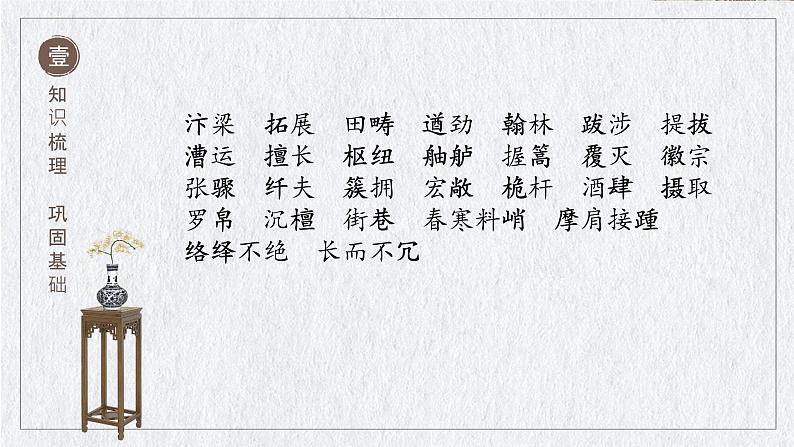 壹
知识梳理 巩固基础
汴梁 拓展 田畴 遒劲 翰林 跋涉 提拔
漕运 擅长 枢纽 舳舻 握篙 覆灭 徽宗
张骤 纤夫 簇拥 宏敞 桅杆 酒肆 摄取
罗帛 沉檀 街巷 春寒料峭 摩肩接踵
络绎不绝 长而不冗